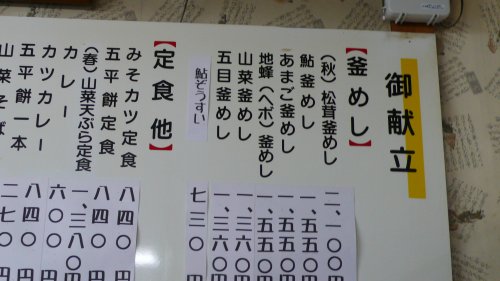 御献立
【釜めし】
(秋)松茸釜めし 二、一〇〇円
鮎釜めし 一、五五〇円
あまご釜めし 一、五五〇円
地蜂(ヘボ)釜めし 一、五五〇円
山菜釜めし 一、三六〇円
五目釜めし 一、三六〇円
鮎ぞうすい 七三〇円
【定食 他】
みそカツ定食 八四〇円
五平餅定食 八四〇円
(春)山菜天ぷら定食 一、三八〇円
カレー 六〇〇
カツカレー 八四〇円
五平餅一本 二七〇円
山菜そば